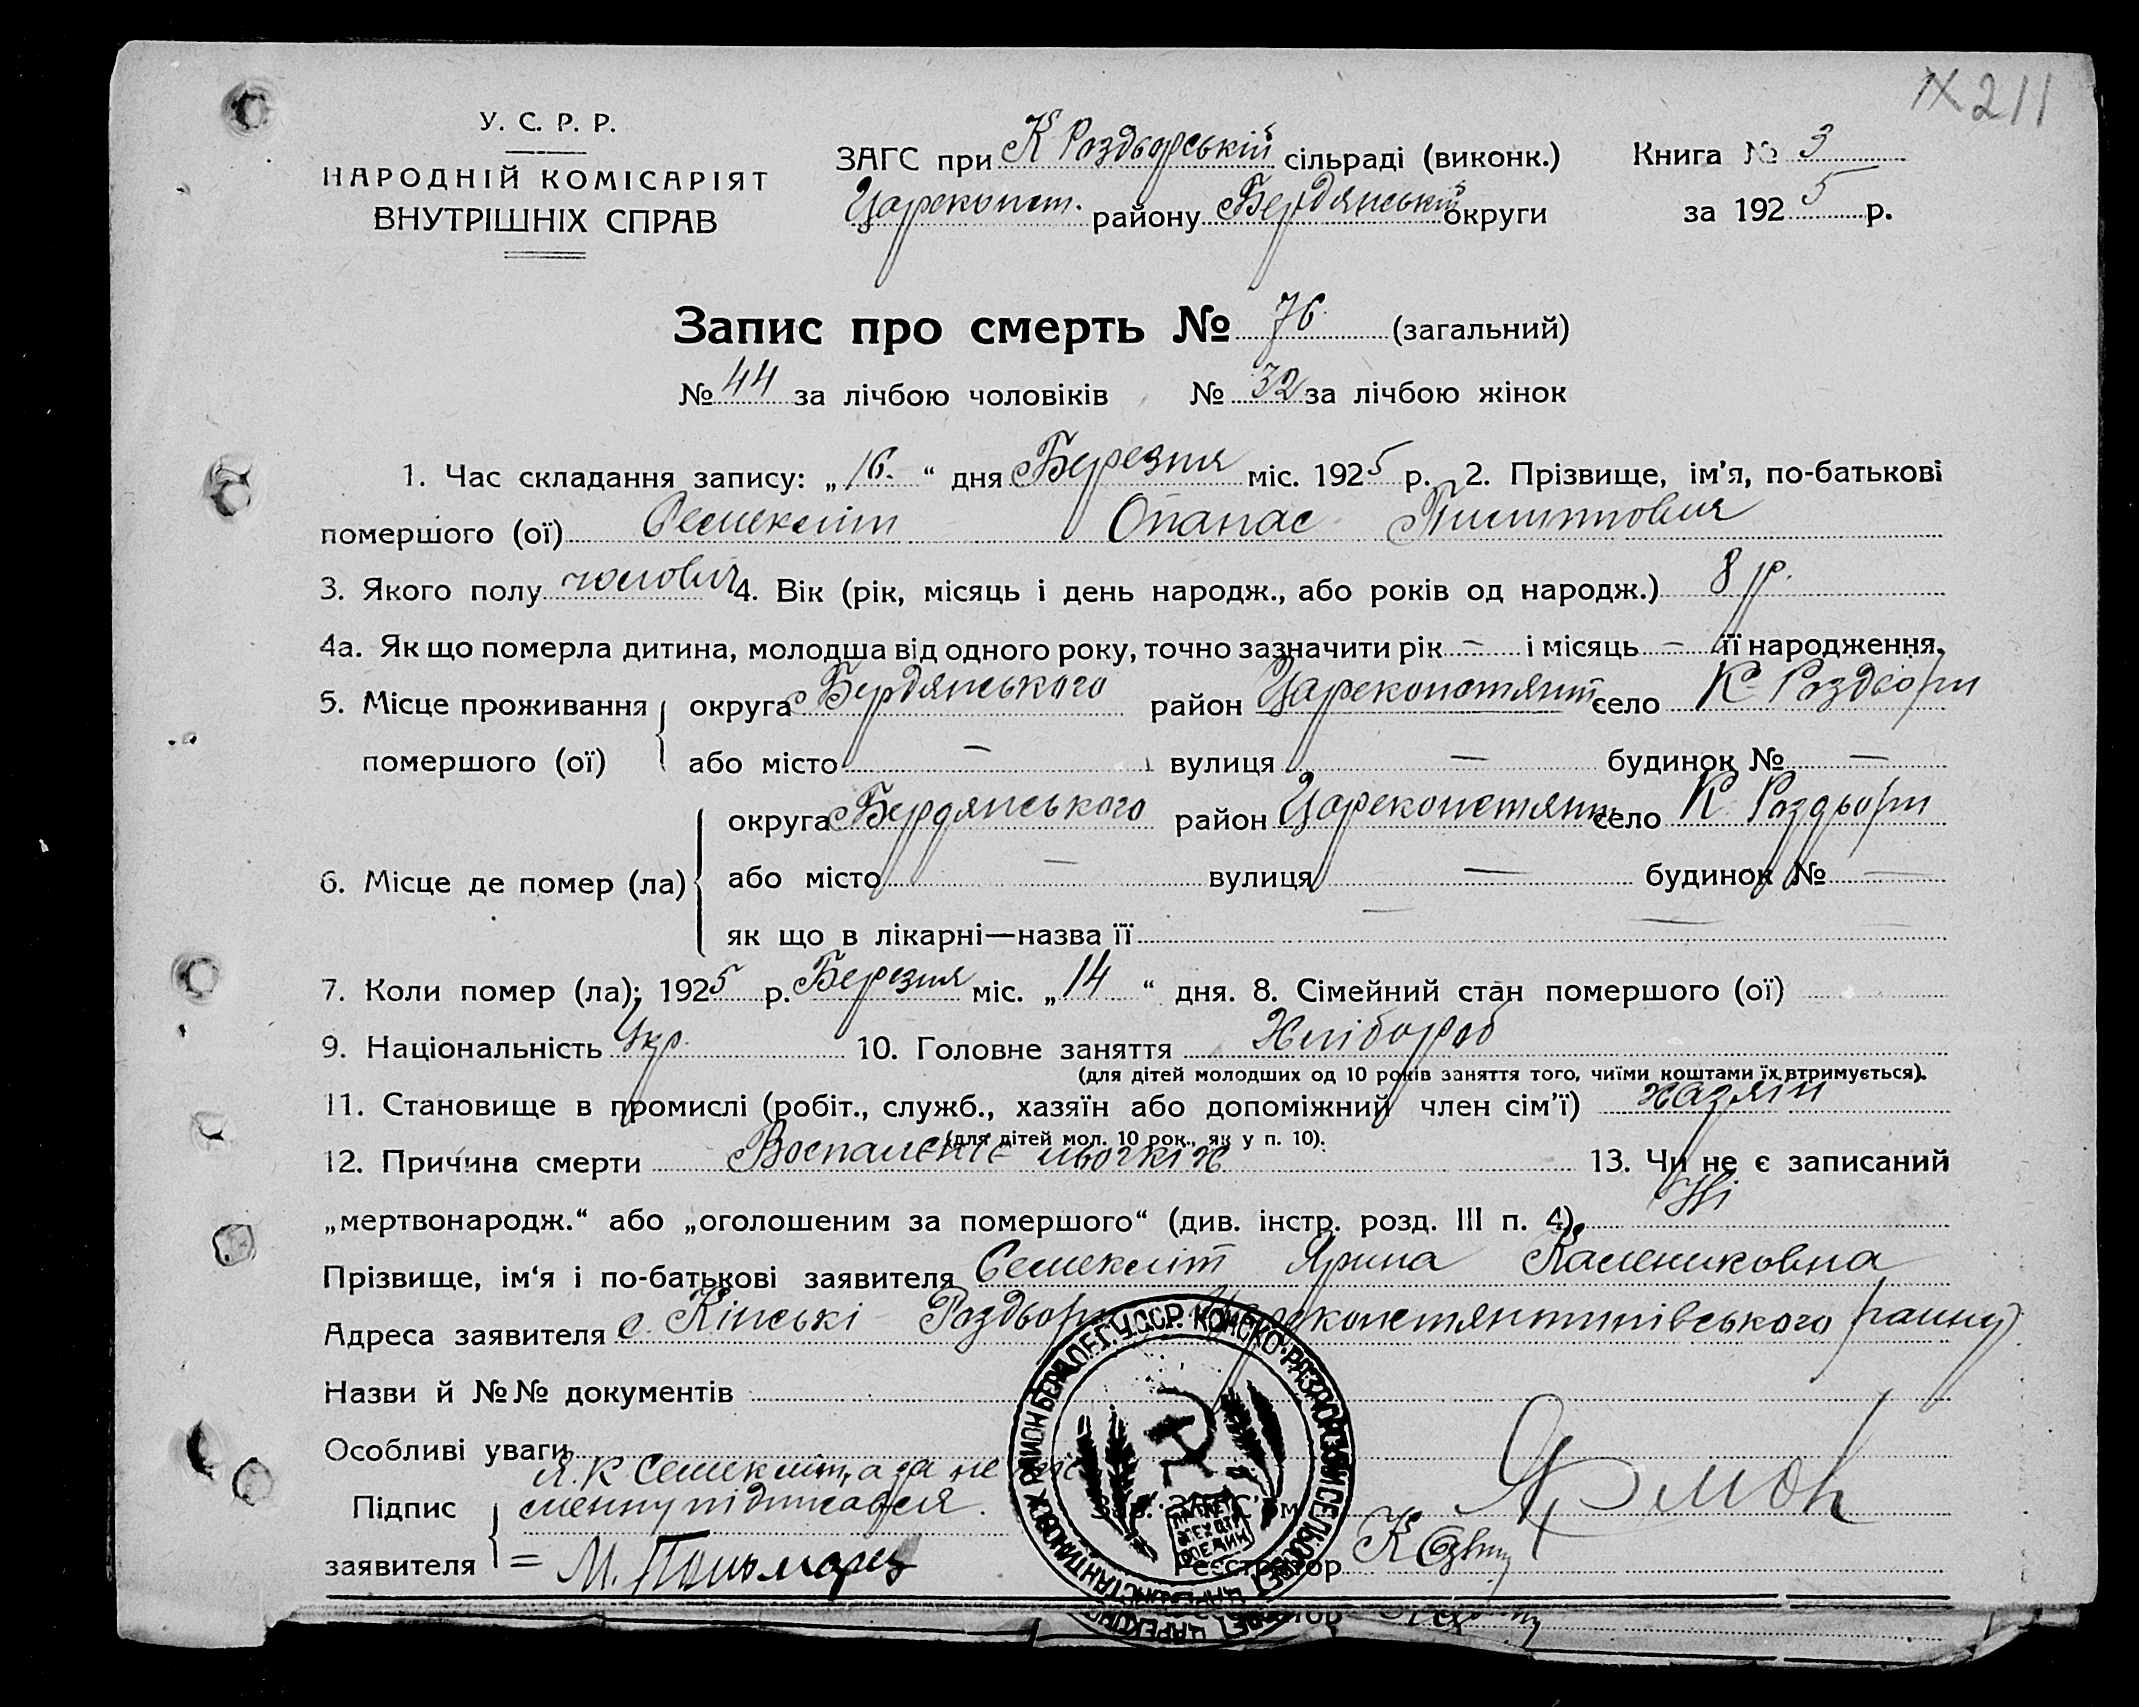 211
У. С. Р. Р.
НАРОДНІЙ КОМІСАРІЯТ
ВНУТРІШНІХ СПРАВ
ЗАГС при К Роздьорській сільраді (виконк.)
Царекност. району Бердянській округи
Книга № 3
за 1925 р.
Запис про смерть № 76 (загальний)
№ 44 за лічбою чоловіків № 32 за лічбою жінок
1. Час складання запису: „16.“ дня Березня міс. 1925 р. 2. Прізвище, ім'я, по-батькові
помершого (ої) Семекліт Опанас
3. Якого полу чолович 4. Вік (рік, місяць і день народж., або років од народж.) 8 р.
4а. Як що померла дитина, молодша від одного року, точно зазначити рік — і місяць — її народження.
5. Місце проживання округа Бердянського район Цареконстянт село К Роздьори
помершого (ої) або місто — вулиця — будинок № —
6. Місце де помер (ла) округа Бердянського район Цареконстянт село К Роздьори
або місто — вулиця — будинок № —
як що в лікарні—назва її — — —
7. Коли помер (ла); 1925 р. Березня міс. „14“ дня. 8. Сімейний стан помершого (ої)
9. Національність Укр. 10. Головне заняття Хлібороб
(для дітей молодших од 10 років заняття того, чиїми коштами їх втримується).
11. Становище в промислі (робіт., служб., хазяїн або допоміжний член сім'ї) хазяін
(для дітей мол. 10 рок., як у п. 10).
12. Причина смерти Воспаленіє льогкіх 13. Чи не є записаний
„мертвонародж.“ або „оголошеним за помершого“ (див. інстр. розд. III п. 4). Ні
Прізвище, ім'я і по-батькові заявителя Семекліт Ярина Калениковна
Адреса заявителя с. Кінські Роздьори Цареконстянтинівського району
Назви й №№ документів
Особливі уваги
Підпис Я. К Семекліт, а за не
сменну підписався
заявителя = М. Пономарец
Зав. ЗАГС'ом
Реєстратор
У.С.С.Р. КОНСКО-РАЗДОРСКИЙ СЕЛЬСОВЕТ ЦАРЕКОНСТАНТИНОВСК РАЙОН